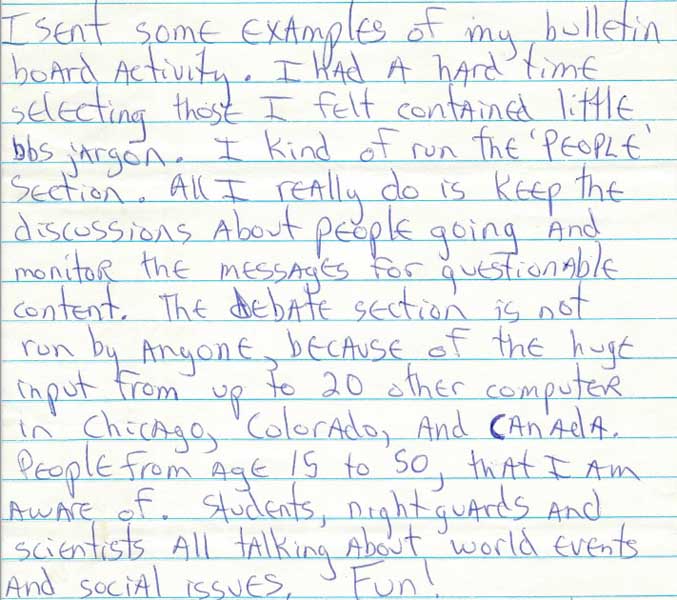 I sent some examples of my bulletin
board activity. I had a hard time
selecting those I felt contained little
bbs jargon. I kind of run the 'PEOPLE'
section. All I really do is keep the
discussions about people going and
monitor the messages for questionable
content. The debate section is not
run by anyone, because of the huge
input from up to 20 other computer
in Chicago, Colorado, and Canada.
People from age 15 to 50, that I am
aware of. Students, nightguards and
scientists all talking about world events
and social issues. Fun!